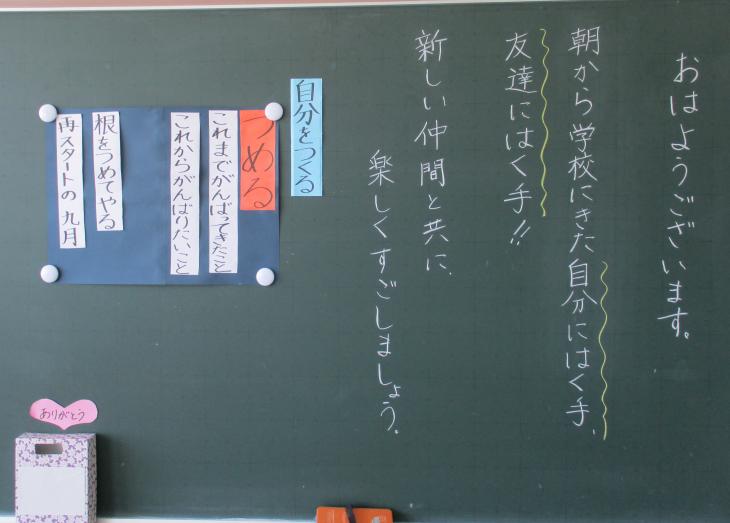 おはようございます。
朝から学校にきた自分にはく手、
友達にはく手!!
新しい仲間と共に、
楽しくすごしましょう。
自分をつくる
つめる
これまでがんばってきたこと
これからがんばりたいこと
根をつめてやる
再スタートの九月
ありがとう